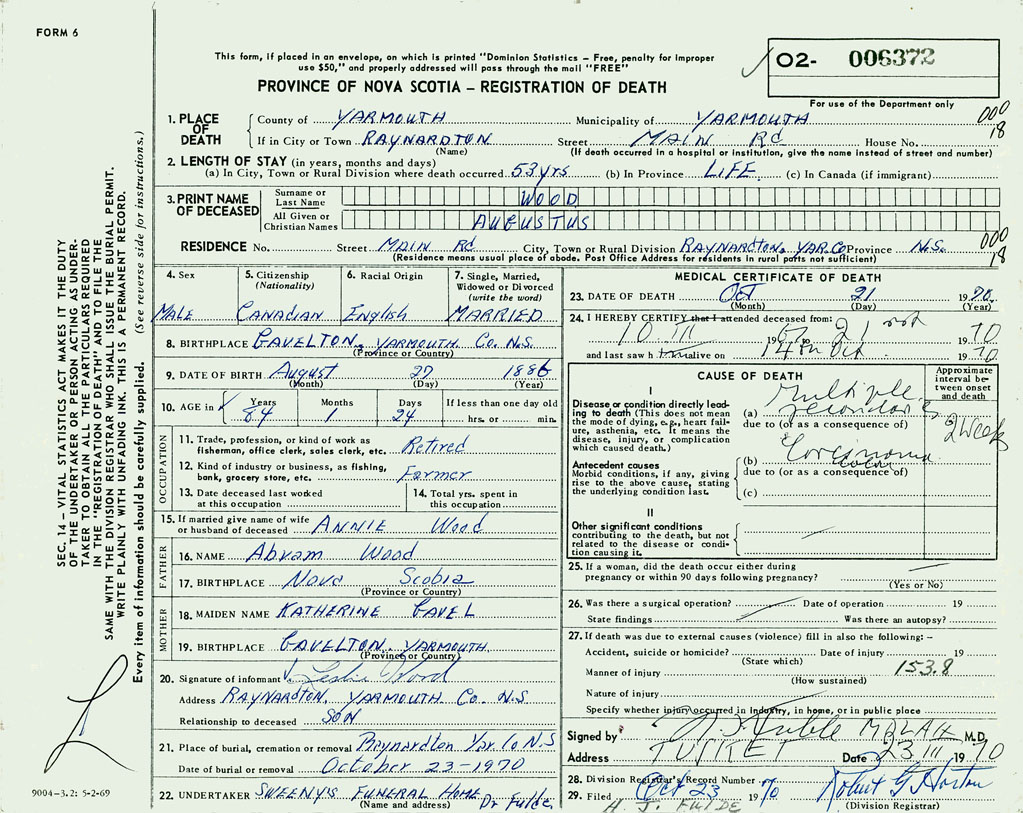 FORM 6
This form, if placed in an envelope, on which is printed "Dominion Statistics – Free, penalty for improper
use $50," and properly addressed will pass through the mail "FREE"
O2- 006372
PROVINCE OF NOVA SCOTIA – REGISTRATION OF DEATH
For use of the Department only
1. PLACE OF DEATH
County of YARMOUTH Municipality of YARMOUTH 000
If in City or Town RAYNARDTON Street MAIN Rd House No. 18
(Name) (If death occurred in a hospital or institution, give the name instead of street and number)
2. LENGTH OF STAY (in years, months and days)
(a) In City, Town or Rural Division where death occurred 53 yrs (b) In Province LIFE (c) In Canada (if immigrant)
3. PRINT NAME OF DECEASED
Surname or Last Name WOOD
All Given or Christian Names AUGUSTUS
RESIDENCE No. Street MAIN Rd City, Town or Rural Division RAYNARDTON, YAR.CO Province N.S. 000
(Residence means usual place of abode. Post Office Address for residents in rural parts not sufficient) 18
4. Sex Male
5. Citizenship (Nationality) CANADIAN
6. Racial Origin English
7. Single, Married, Widowed or Divorced (write the word) MARRIED
8. BIRTHPLACE GAVELTON, YARMOUTH Co. N.S.
(Province or Country)
9. DATE OF BIRTH August 27 1886
(Month) (Day) (Year)
10. AGE in Years 84 Months 1 Days 24 If less than one day old hrs. or min.
OCCUPATION
11. Trade, profession, or kind of work as
fisherman, office clerk, sales clerk, etc. Retired
12. Kind of industry or business, as fishing,
bank, grocery store, etc. Farmer
13. Date deceased last worked
at this occupation
14. Total yrs. spent in
this occupation
15. If married give name of wife
or husband of deceased ANNIE Wood
FATHER
16. NAME Abram Wood
17. BIRTHPLACE Nova Scotia
(Province or Country)
MOTHER
18. MAIDEN NAME KATHERINE GAVEL
19. BIRTHPLACE GAVELTON, YARMOUTH
(Province or Country)
20. Signature of informant Leslie Wood
Address RAYNARDTON, YARMOUTH Co. N.S
Relationship to deceased SON
21. Place of burial, cremation or removal Raynardton Yar. Co N.S
Date of burial or removal October 23-1970
22. UNDERTAKER SWEENY'S FUNERAL HOME
(Name and address)
MEDICAL CERTIFICATE OF DEATH
23. DATE OF DEATH Oct 21 1970
(Month) (Day) (Year)
24. I HEREBY CERTIFY that I attended deceased from:
10 III 19 21 1970
and last saw h alive on 14th Oct 1970
CAUSE OF DEATH
Approximate interval between onset and death
I
Disease or condition directly leading to death (This does not mean the mode of dying, e.g., heart failure, asthenia, etc. It means the disease, injury, or complication which caused death.)
(a) Multiple secondaries
due to (or as a consequence of)
2 Week
Antecedent causes
Morbid conditions, if any, giving rise to the above cause, stating the underlying condition last.
(b) Carcinoma colon
due to (or as a consequence of)
(c)
II
Other significant conditions
contributing to the death, but not related to the disease or condition causing it.
25. If a woman, did the death occur either during
pregnancy or within 90 days following pregnancy?
(Yes or No)
26. Was there a surgical operation? Date of operation 19
State findings Was there an autopsy?
27. If death was due to external causes (violence) fill in also the following: –
Accident, suicide or homicide? Date of injury 19
(State which)
Manner of injury 153.8
(How sustained)
Nature of injury
Specify whether injury occurred in Industry, in home, or in public place
Signed by M.D.
Address TUSKET Date 23 III 1970
28. Division Registrar's Record Number
29. Filed Oct 23 1970 Robert G Horton
(Division Registrar)
SEC. 14 – VITAL STATISTICS ACT MAKES IT THE DUTY
OF THE UNDERTAKER OR PERSON ACTING AS UNDER-
TAKER TO OBTAIN ALL THE PARTICULARS REQUIRED
IN THE "REGISTRATION OF DEATH" AND TO FILE THE
SAME WITH THE DIVISION REGISTRAR WHO SHALL ISSUE THE BURIAL PERMIT.
WRITE PLAINLY WITH UNFADING INK. THIS IS A PERMANENT RECORD.
Every item of information should be carefully supplied. (See reverse side for instructions.)
9004-3.2: 5-2-69